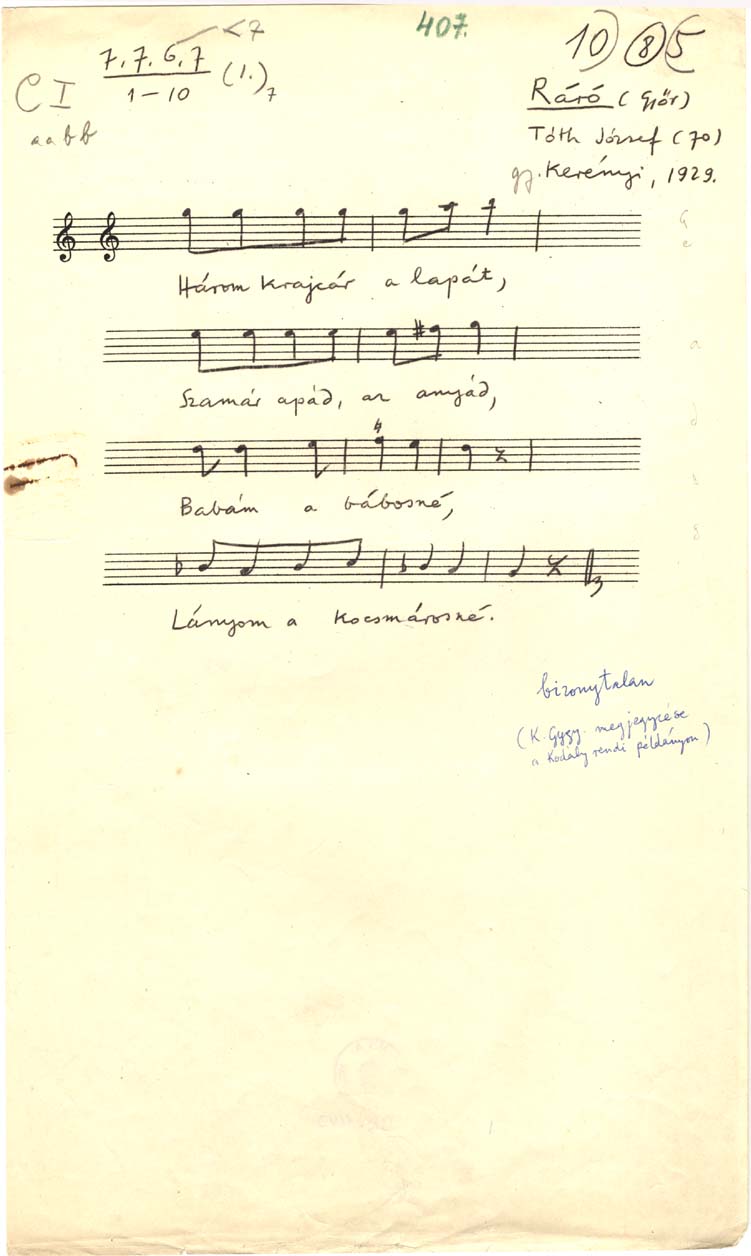 407.
10) (8) 5
<7
C I 7, 7. 6, 7 (1.) 7
1–10
a a b b
Ráró (Győr)
Tóth József (70)
gy. Kerényi, 1929.
Három krajcár a lapát,
Szamár apád, az anyád,
Babám a bábosné,
Lányom a kocsmárosné.
bizonytalan
(K. Gygy. megjegyzése
a Kodály rendi példányon)